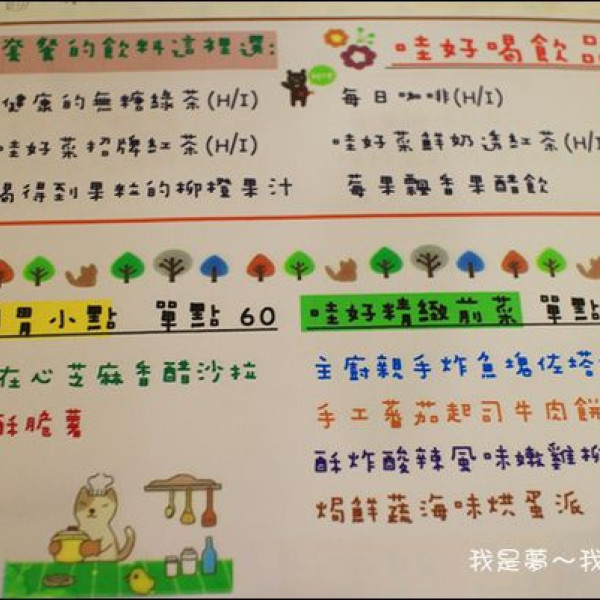 套餐的飲料這裡選:
健康的無糖綠茶(H/I)
哇好菜招牌紅茶(H/I)
喝得到果粒的柳橙果汁
哇好喝飲品
每日咖啡(H/I)
哇好菜鮮奶透紅茶(H/I
莓果飄香果醋飲
胃小點 單點 60
在心芝麻香醋沙拉
酥脆薯
哇好精緻前菜 單點
主廚親手炸魚塊佐塔
手工蕃茄起司牛肉餅
酥炸酸辣風味嫩雞柳
焗鮮蔬海味烘蛋派
我是夢～我